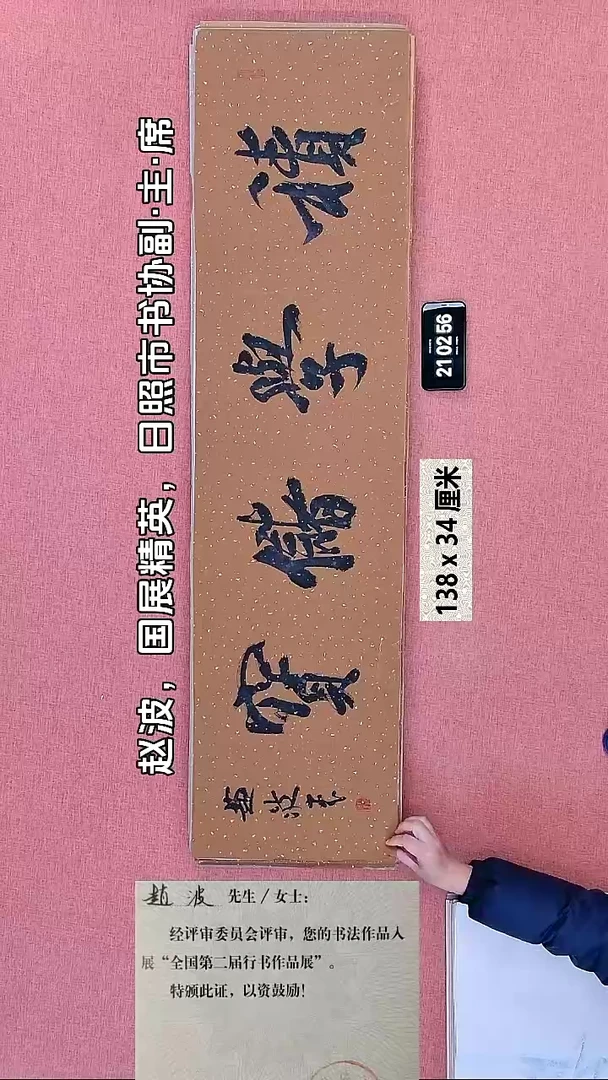 赵波，国展精英，日照市书协副·主·席
積學儲寶
趙波
21 02 56
138 x 34 厘米
趙波 先生/女士：
经评审委员会评审，您的书法作品入
展“全国第二届行书作品展”。
特颁此证，以资鼓励！